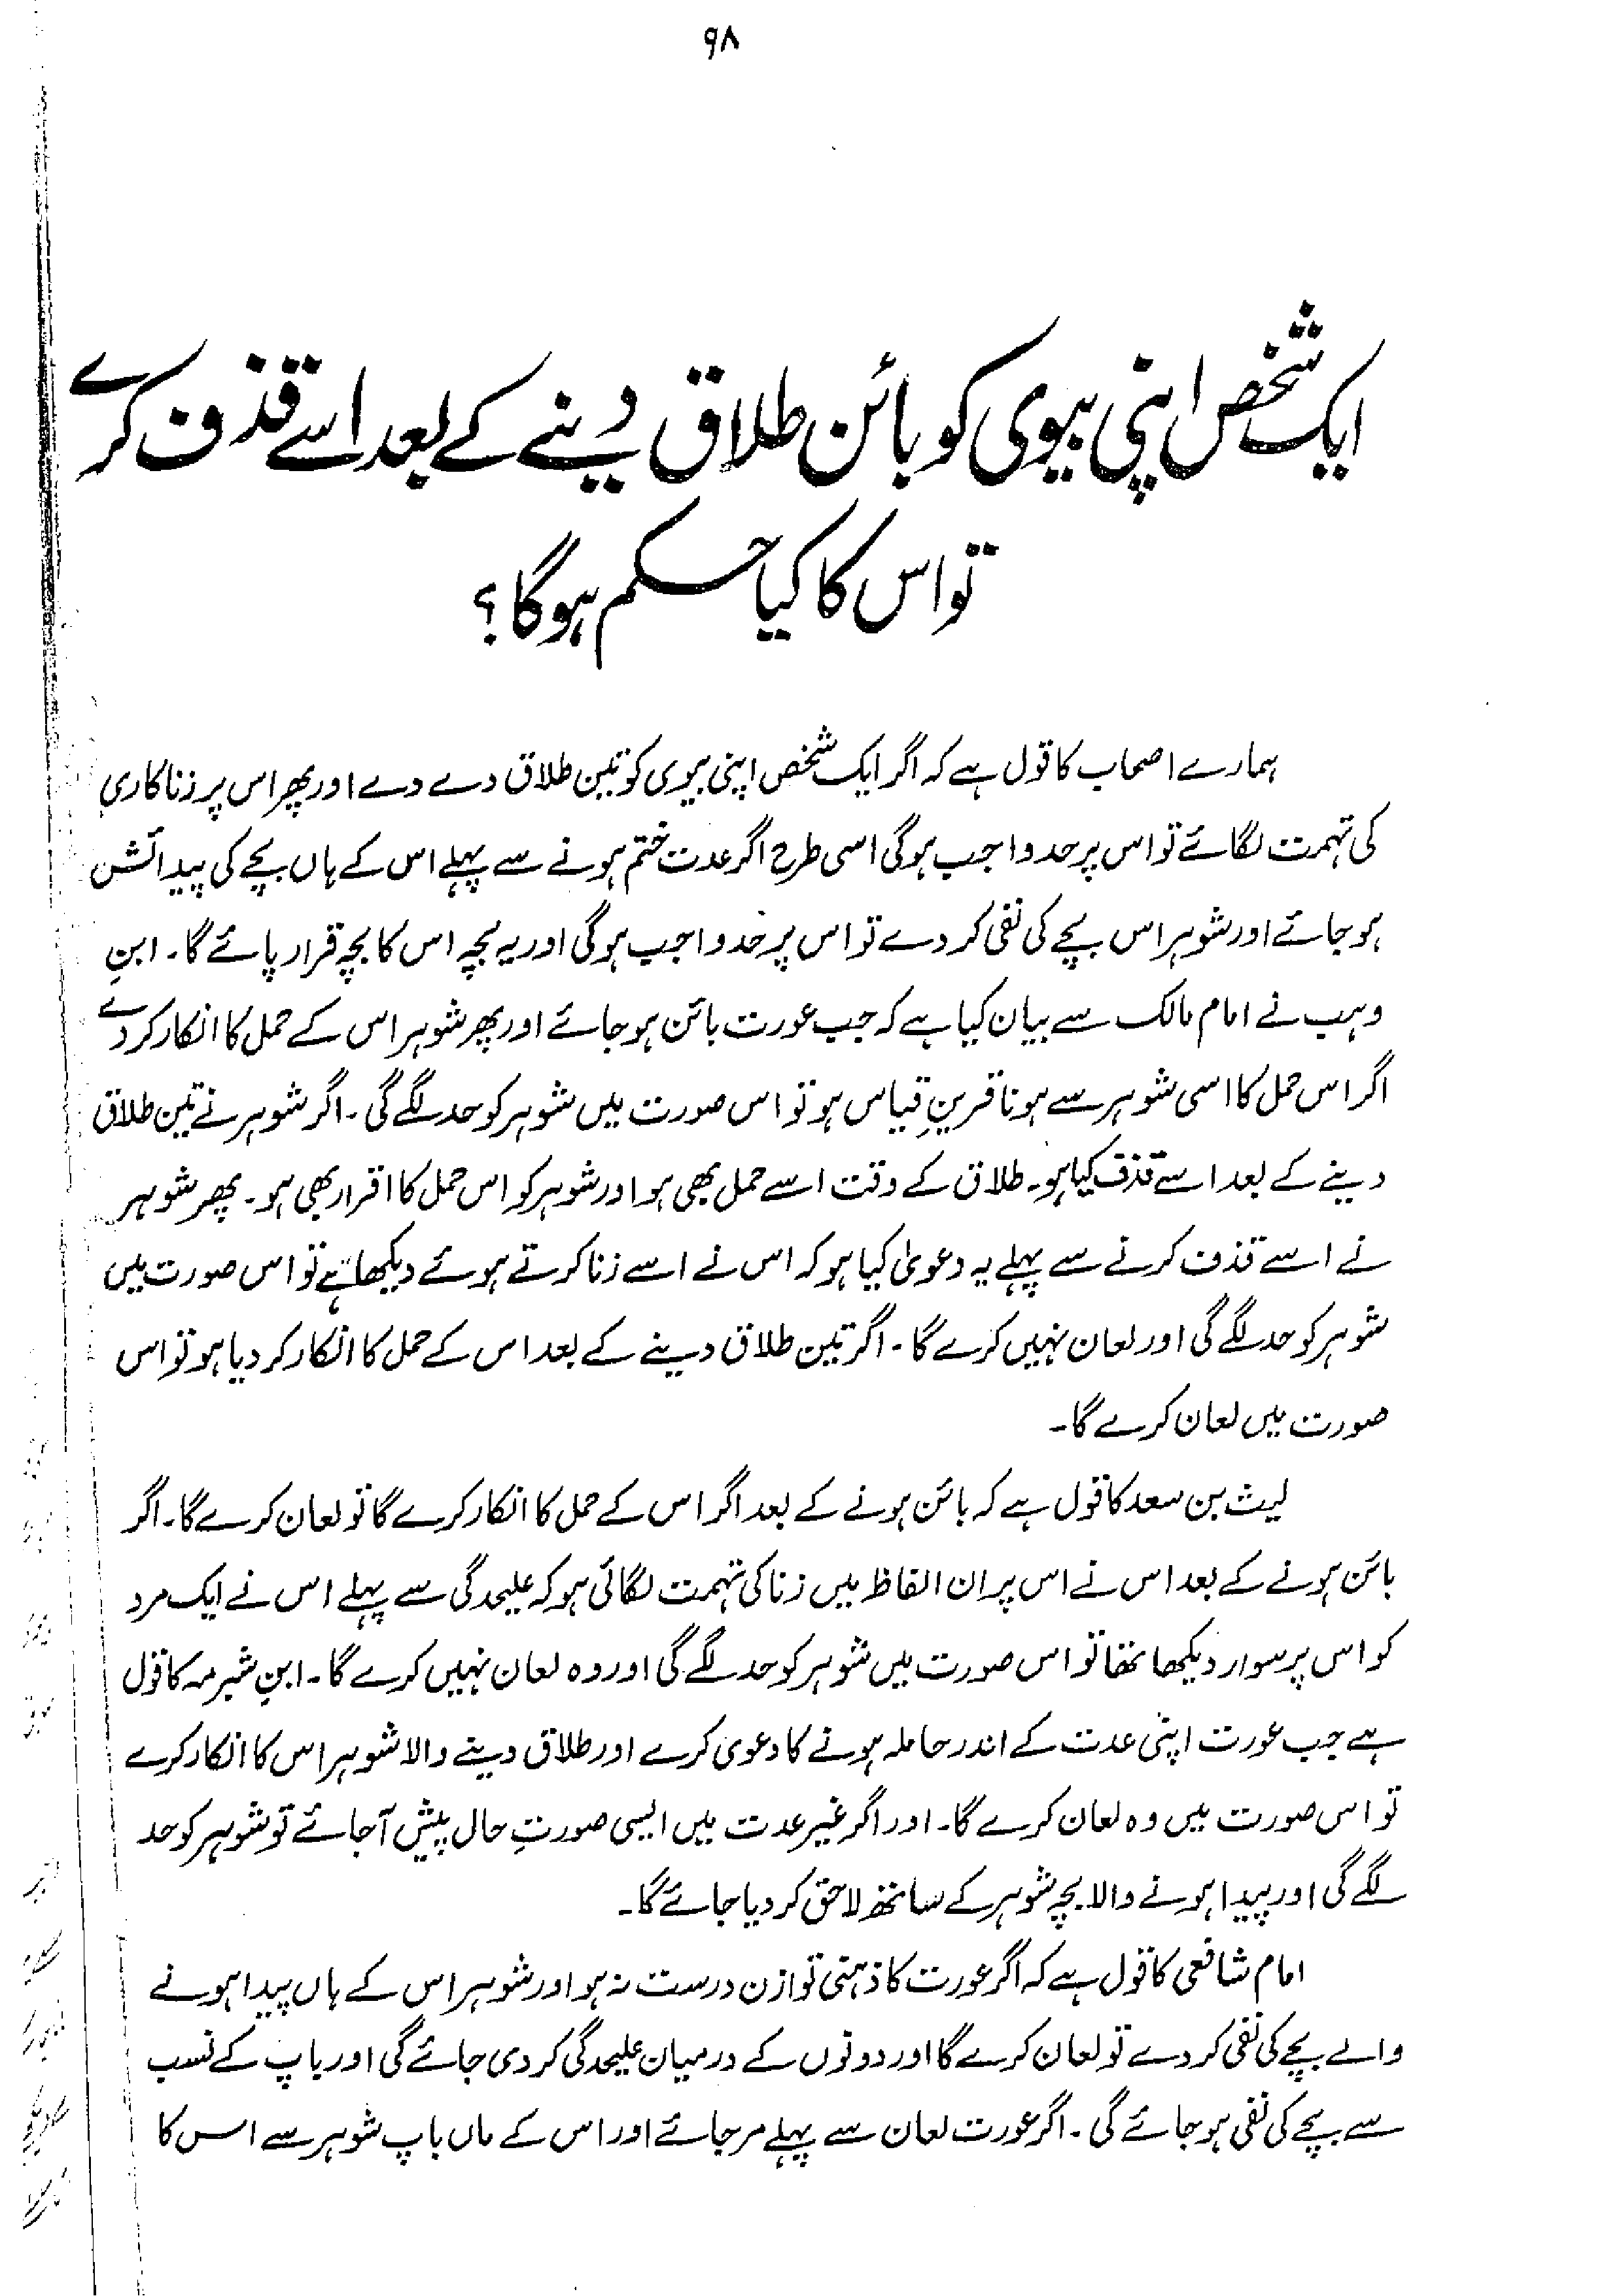 ۹۸
ایک شخص اپنی بیوی کو بائن طلاق دینے کے بعد اسے قذف کرے
تو اس کا کیا حکم ہوگا؟
ہمارے اصحاب کا قول ہے کہ اگر ایک شخص اپنی بیوی کو تین طلاق دے دے اور پھر اس پر زنا کاری
کی تہمت لگائے تو اس پر حد واجب ہوگی اسی طرح اگر عدت ختم ہونے سے پہلے اس کے ہاں بچے کی پیدائش
ہو جائے اور شوہر اس بچے کی نفی کر دے تو اس پر حد واجب ہوگی اور یہ بچہ اس کا بچہ قرار پائے گا۔ ابنِ
وہب نے امام مالک سے بیان کیا ہے کہ جب عورت بائن ہو جائے اور پھر شوہر اس کے حمل کا انکار کر دے
اگر اس حمل کا اسی شوہر سے ہونا قرینِ قیاس ہو تو اس صورت میں شوہر کو حد لگے گی۔ اگر شوہر نے تین طلاق
دینے کے بعد اسے قذف کیا ہو۔ طلاق کے وقت اسے حمل بھی ہو اور شوہر کو اس حمل کا اقرار بھی ہو۔ پھر شوہر
نے اسے قذف کرنے سے پہلے یہ دعویٰ کیا ہو کہ اس نے اسے زنا کرتے ہوئے دیکھا ہے تو اس صورت میں
شوہر کو حد لگے گی اور لعان نہیں کرے گا۔ اگر تین طلاق دینے کے بعد اس کے حمل کا انکار کر دیا ہو تو اس
صورت میں لعان کرے گا۔
لیث بن سعد کا قول ہے کہ بائن ہونے کے بعد اگر اس کے حمل کا انکار کرے گا تو لعان کرے گا۔ اگر
بائن ہونے کے بعد اس نے اس پر ان الفاظ میں زنا کی تہمت لگائی ہو کہ علیحدگی سے پہلے اس نے ایک مرد
کو اس پر سوار دیکھا تھا تو اس صورت میں شوہر کو حد لگے گی اور وہ لعان نہیں کرے گا۔ ابنِ شبرمہ کا قول
ہے جب عورت اپنی عدت کے اندر حاملہ ہونے کا دعویٰ کرے اور طلاق دینے والا شوہر اس کا انکار کرے
تو اس صورت میں وہ لعان کرے گا۔ اور اگر غیر عدت میں ایسی صورتِ حال پیش آ جائے تو شوہر کو حد
لگے گی اور پیدا ہونے والا بچہ شوہر کے ساتھ لاحق کر دیا جائے گا۔
امام شافعی کا قول ہے کہ اگر عورت کا ذہنی توازن درست نہ ہو اور شوہر اس کے ہاں پیدا ہونے
والے بچے کی نفی کر دے تو لعان کرے گا اور دونوں کے درمیان علیحدگی کر دی جائے گی اور باپ کے نسب
سے بچے کی نفی ہو جائے گی۔ اگر عورت لعان سے پہلے مر جائے اور اس کے ماں باپ شوہر سے اس کا